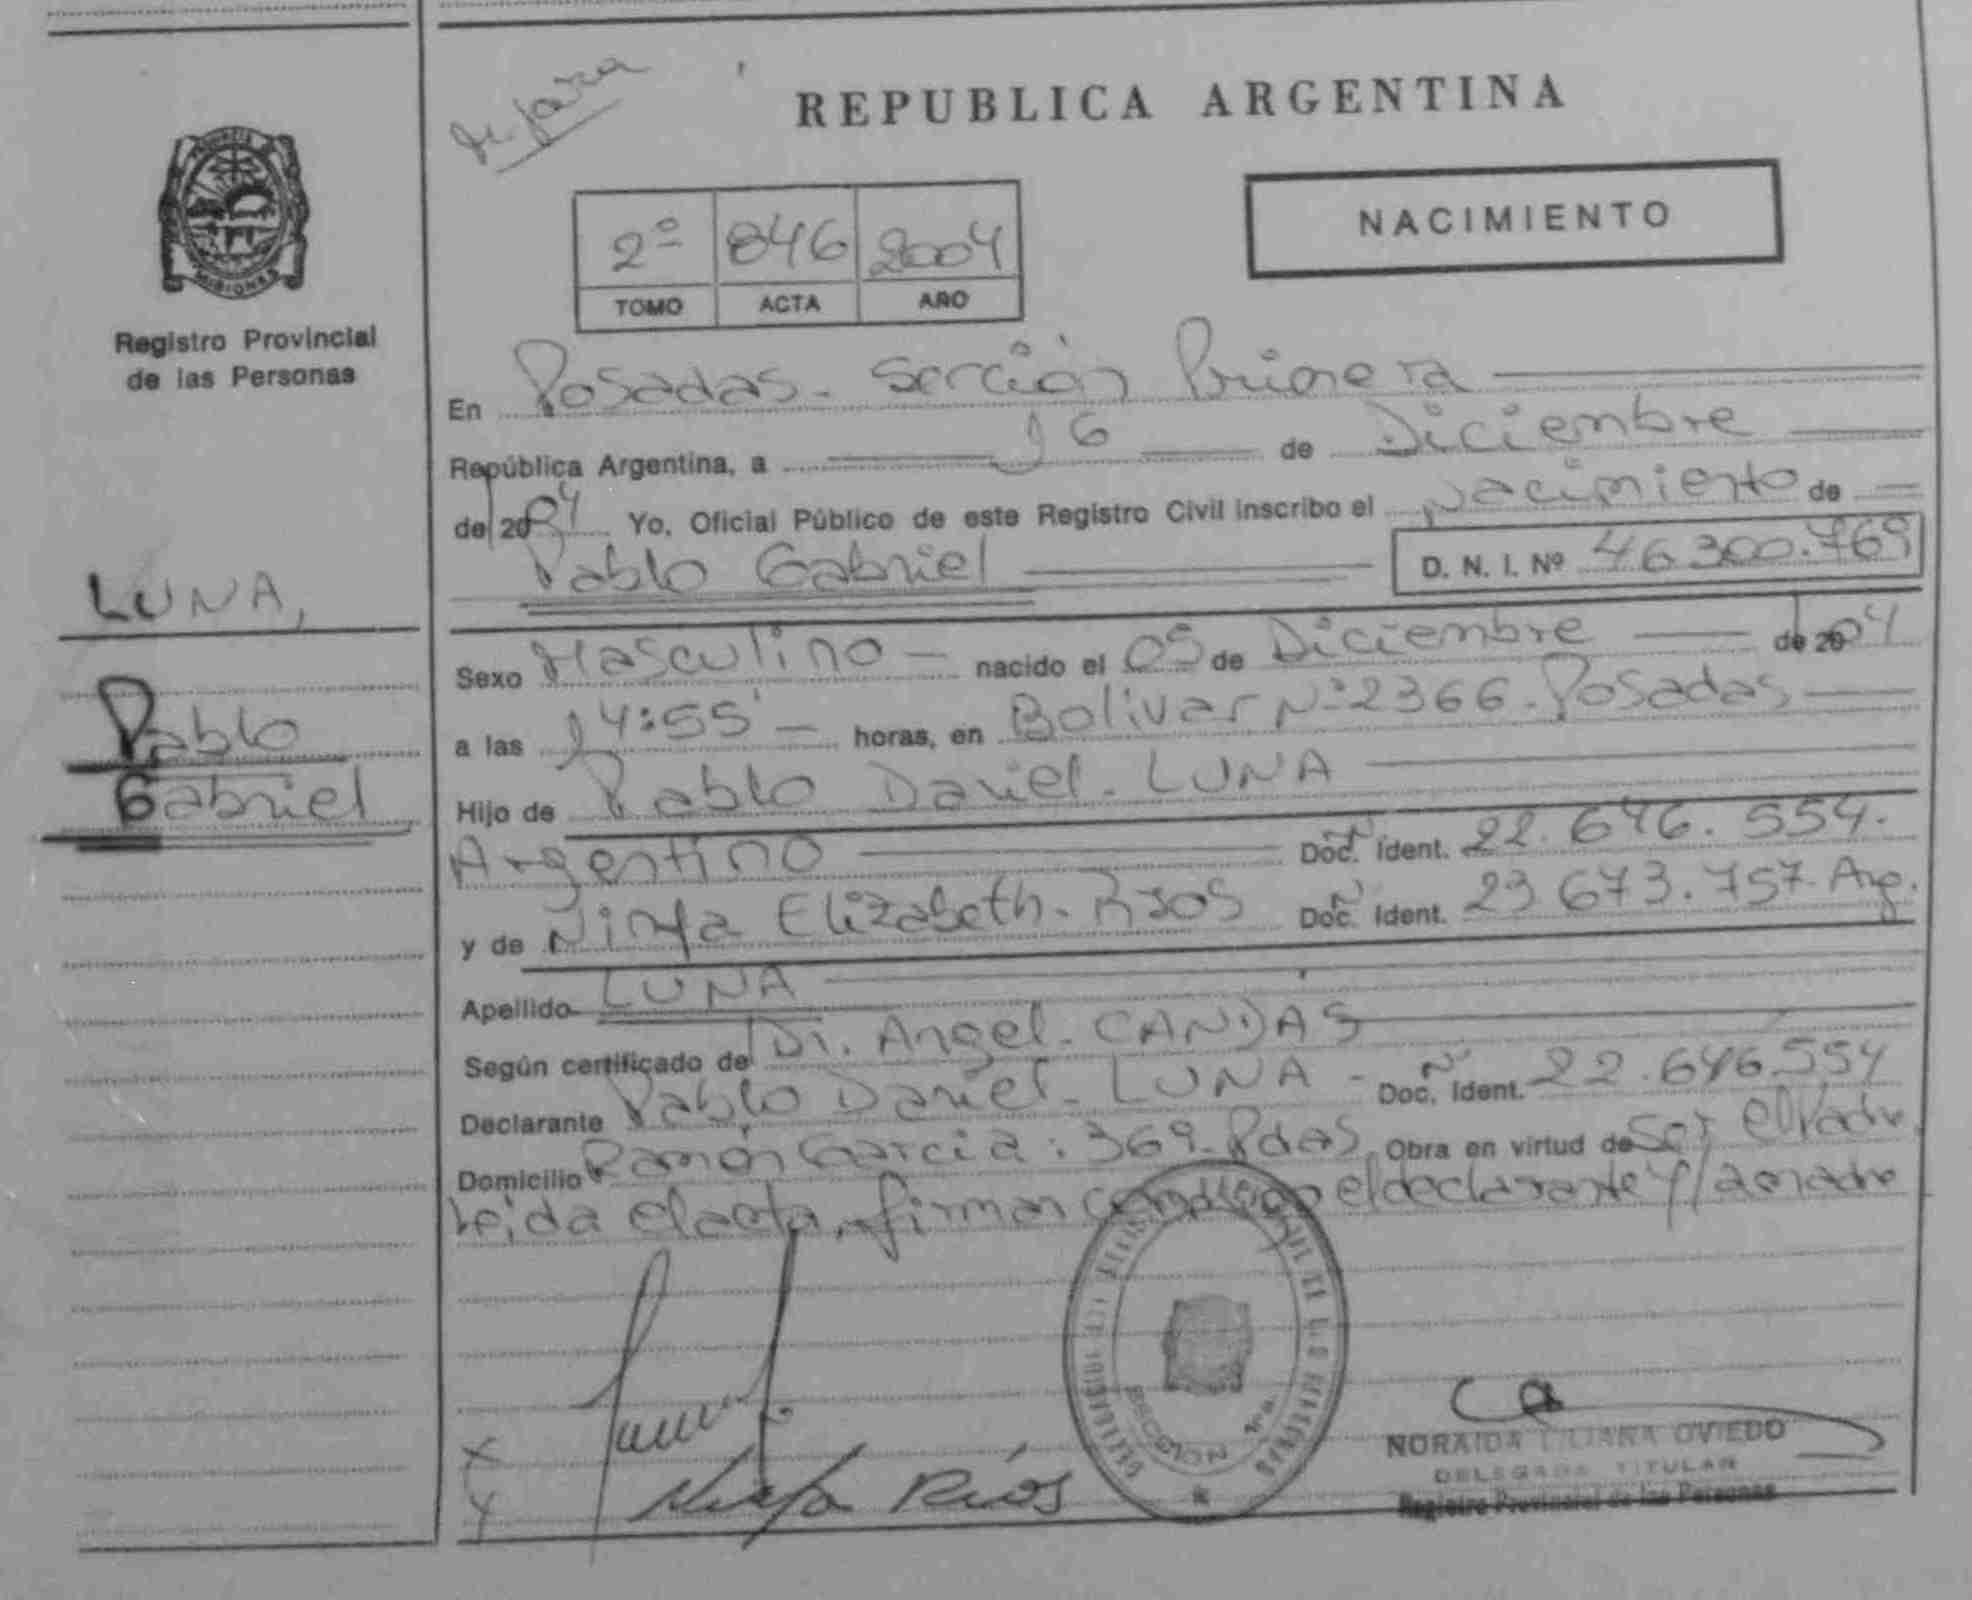 REPUBLICA ARGENTINA
PROVINCIA
MISIONES
Registro Provincial
de las Personas
NACIMIENTO
2º 846 2004
TOMO ACTA AÑO
En Posadas. Sección Primera
República Argentina, a 16 de Diciembre
de 2004 Yo, Oficial Público de este Registro Civil inscribo el Nacimiento de
Pablo Gabriel D. N. I. Nº 46.300.769
LUNA,
Pablo
Gabriel
Sexo Masculino nacido el 05 de Diciembre de 2004
a las 14:55' horas, en Bolivar Nº 2366. Posadas
Hijo de Pablo Daniel. LUNA
Argentino Doc. Ident. 22.646.554.
y de Ninfa Elizabeth. RIOS Doc. Ident. 23.673.757. Arg.
Apellido LUNA
Según certificado de Dr. Angel. CANDAS
Declarante Pablo Daniel. LUNA - Doc. Ident. 22.646.554
Domicilio Ramón Garcia: 369. Pdas. Obra en virtud de Ser el Padre.
Leida el acta, firman conmigo el declarante y la madre
SECCION 1ra.
Ninfa Ríos
NORAIDA LILIANA OVIEDO
DELEGADA TITULAR
Registro Provincial de las Personas